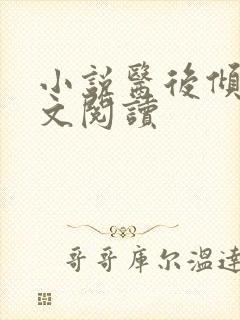 小說醫後傾
文閱讀
哥哥庫尔温達